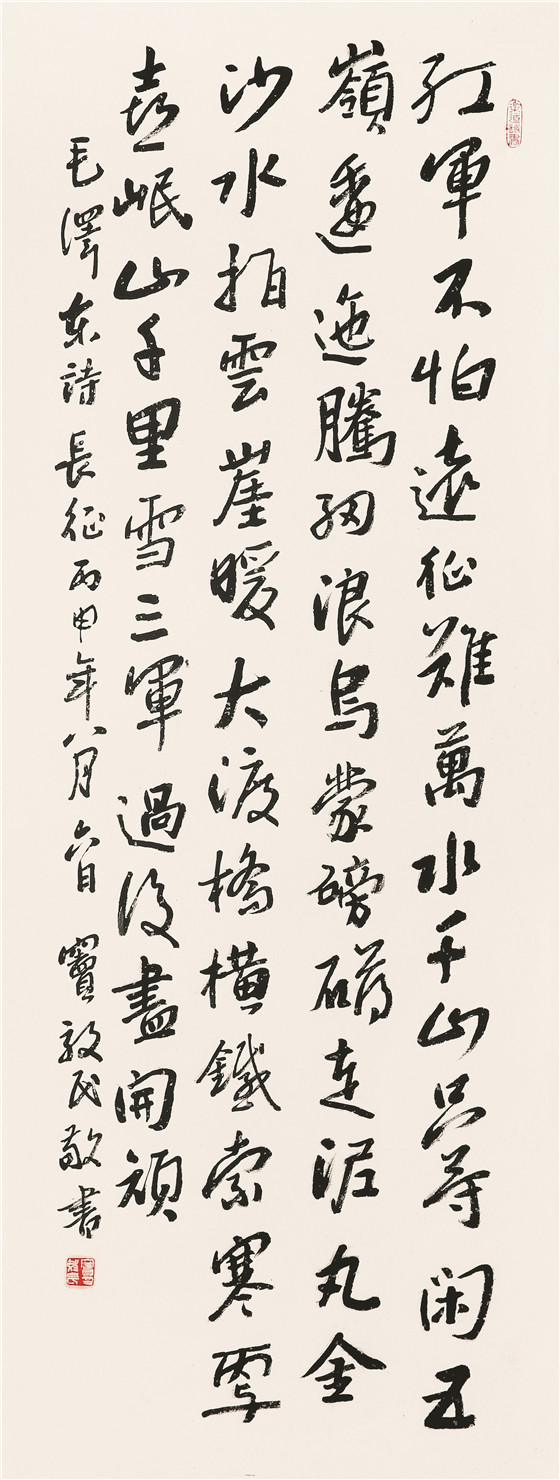 紅軍不怕遠征難萬水千山只等闲五
嶺逶迤騰細浪烏蒙磅礴走泥丸金
沙水拍雲崖暖大渡橋橫鐵索寒更
喜岷山千里雪三軍過後盡開顏
毛澤東詩長征丙申年八月六日竇敦民敬書